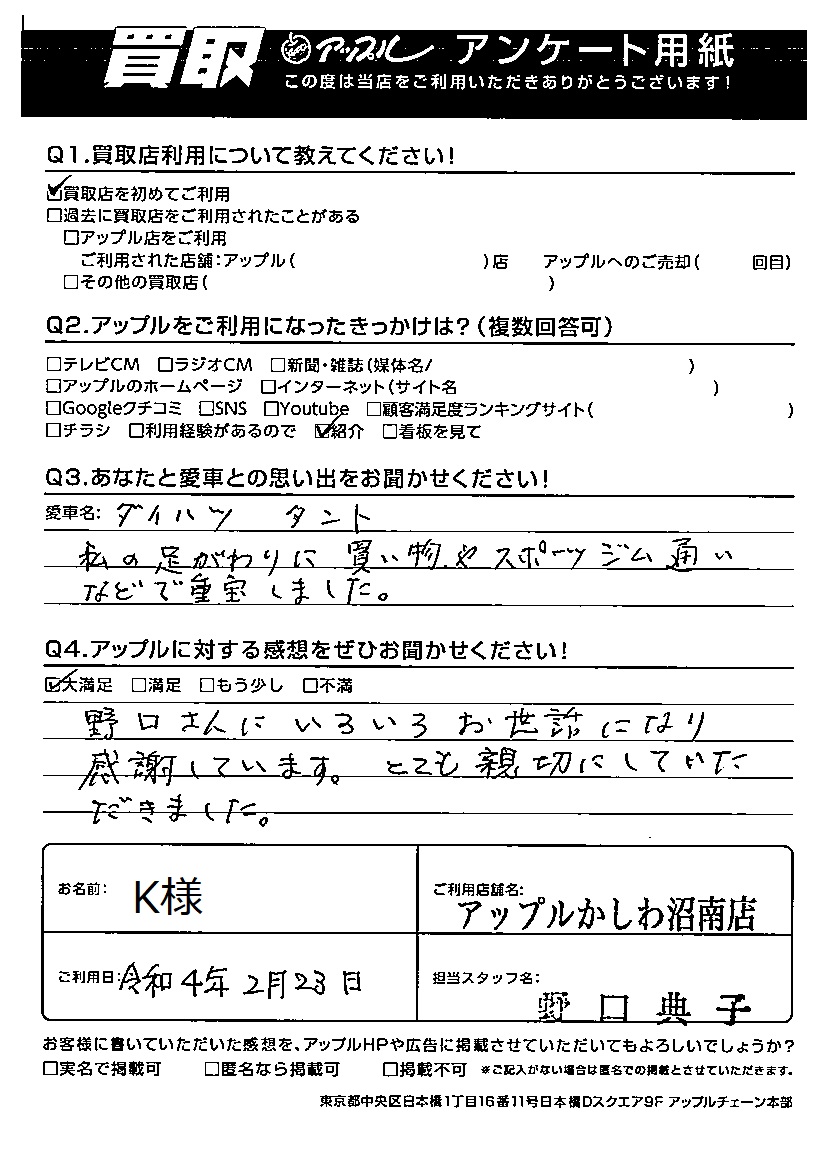 買取 アップル アンケート用紙
この度は当店をご利用いただきありがとうございます!
Q1.買取店利用について教えてください!
☑買取店を初めてご利用
□過去に買取店をご利用されたことがある
□アップル店をご利用
ご利用された店舗:アップル( )店 アップルへのご売却( 回目)
□その他の買取店( )
Q2.アップルをご利用になったきっかけは?(複数回答可)
□テレビCM □ラジオCM □新聞・雑誌(媒体名/ )
□アップルのホームページ □インターネット(サイト名 )
□Googleクチコミ □SNS □Youtube □顧客満足度ランキングサイト( )
□チラシ □利用経験があるので ☑紹介 □看板を見て
Q3.あなたと愛車との思い出をお聞かせください!
愛車名: ダイハツ タント
私の足がわりに 買い物やスポーツジム通い
などで重宝しました。
Q4.アップルに対する感想をぜひお聞かせください!
☑大満足 □満足 □もう少し □不満
野口さんに いろいろ お世話になり
感謝しています。 とても親切にしていた
だきました。
お名前: K様
ご利用店舗名:
アップルかしわ沼南店
ご利用日:令和4年2月23日
担当スタッフ名:
野口典子
お客様に書いていただいた感想を、アップルHPや広告に掲載させていただいてもよろしいでしょうか?
□実名で掲載可 □匿名なら掲載可 □掲載不可 ※ご記入がない場合は匿名での掲載とさせていただきます。
東京都中央区日本橋1丁目16番11号日本橋Dスクエア9F アップルチェーン本部